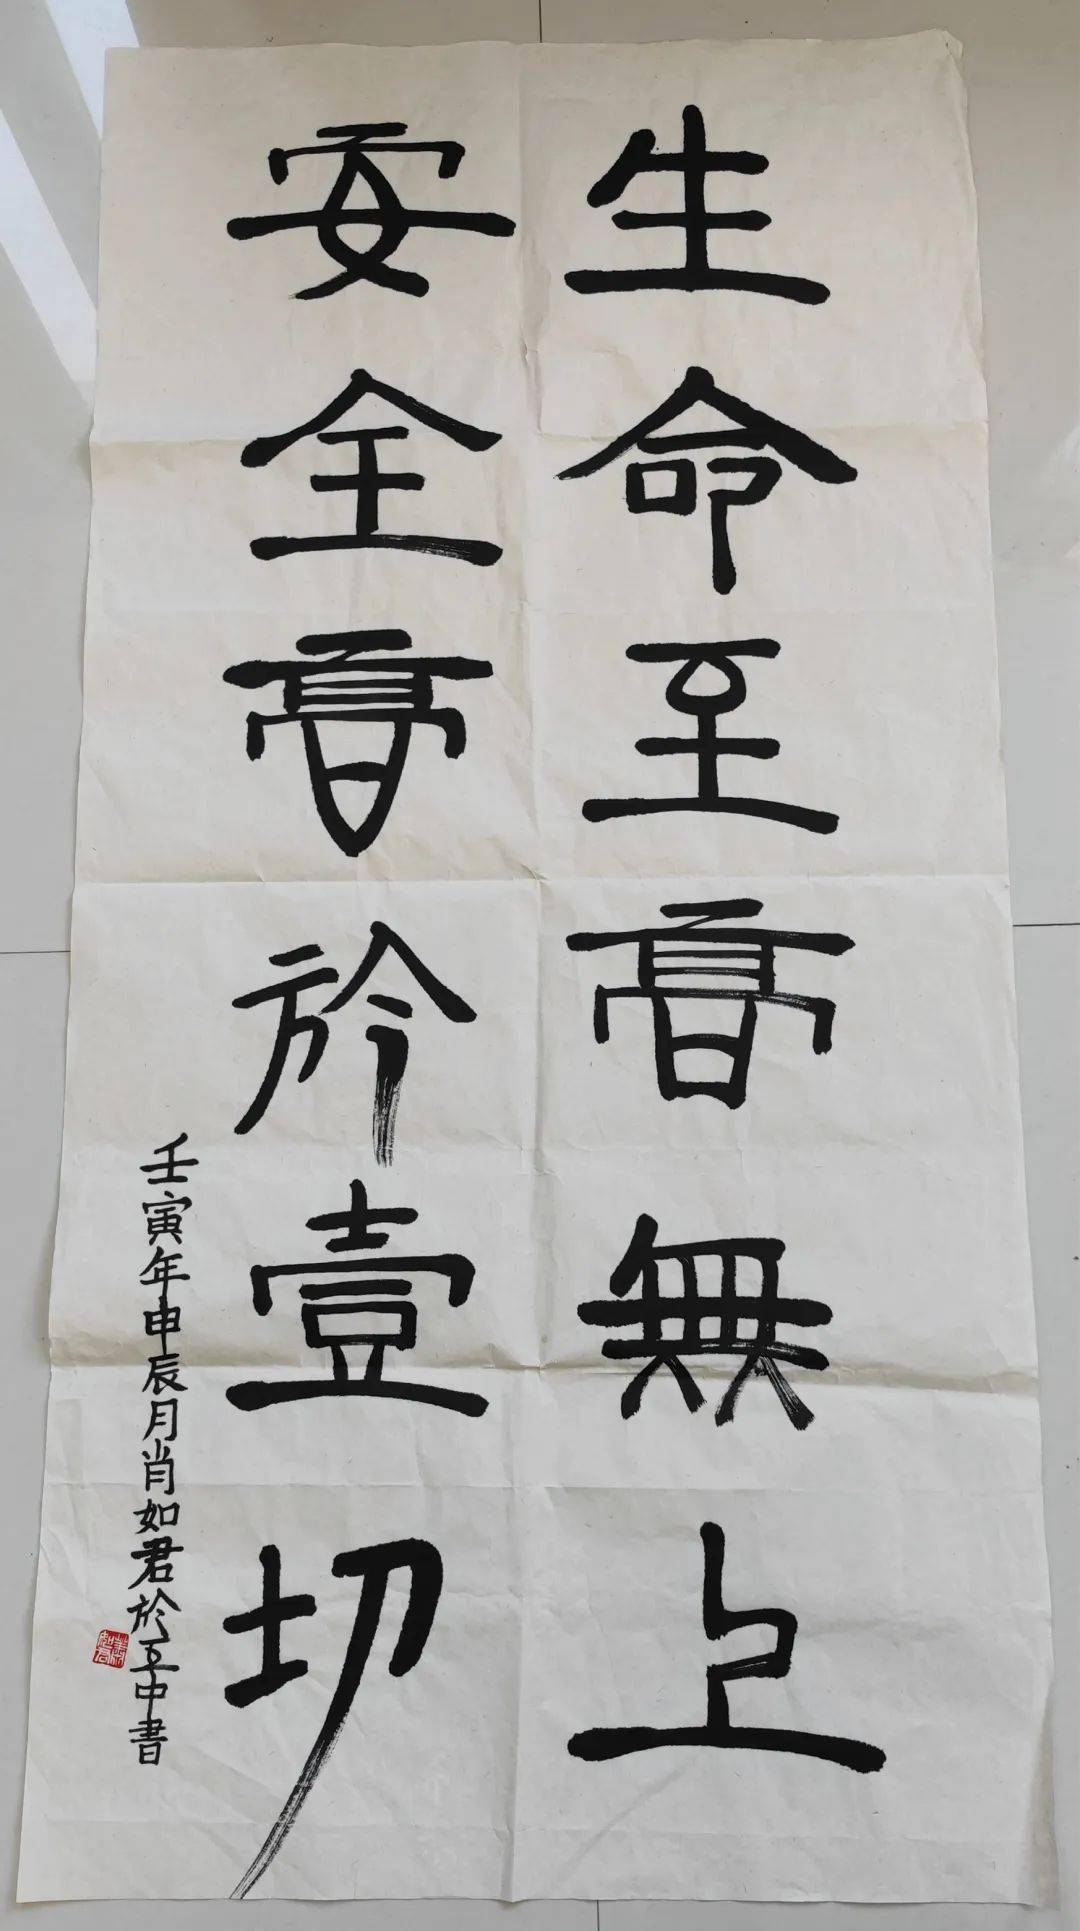 生命至高無上
安全高於壹切
壬寅年申辰月肖如君於五中書